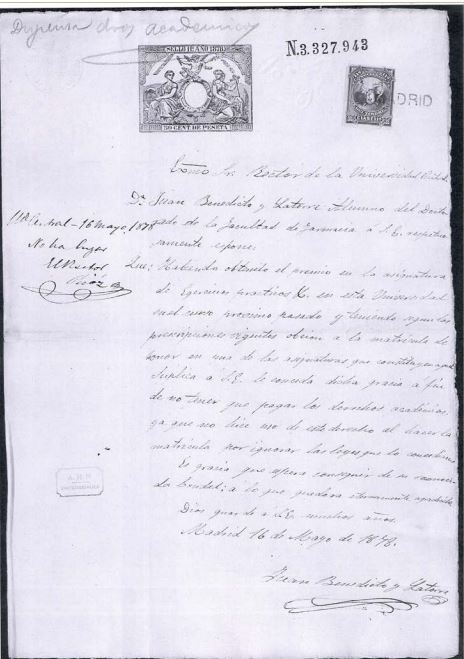 Dispensa dros academicos
SELLO 11º AÑO 1878
50 CENT DE PESETA
N.3.327.943
MADRID
Exmo Sr. Rector de la Universidad Central
Dn Juan Benedicto y Latorre Alumno del Docto
rado de la facultad de Farmacia á S.E. respetuo
samente espone:
16 Mayo 1878
No ha lugar
El Rector
Que: Habiendo obtenido el premio en la asignatura
de Egercicios practicos &. en esta Universidad
en el curso proximo pasado y teniendo segun las
prescripciones vigentes obcion á la matricula de
honor en una de las asignaturas que constituyen
Suplica á S.E. le conceda dicha gracia a fin
de no tener que pagar los derechos académicos
ya que no hice uso de este derecho al hacer la
matricula por ignorar las leyes que lo conceden
Es gracia que espera conseguir de su reconoci
da bondad; á lo que quedará eternamente agradecido
Dios guarde á S.E. muchos años.
Madrid 16 de Mayo de 1878.
Juan Benedicto y Latorre
A.H.N.
UNIVERSIDADES